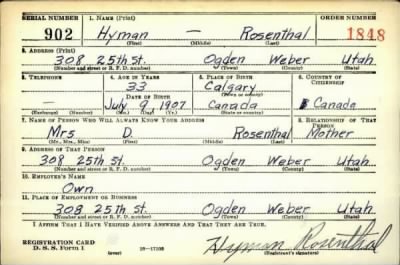 SERIAL NUMBER 1. NAME (Print) ORDER NUMBER
902 Hyman — Rosenthal 1848
(First) (Middle) (Last)
2. ADDRESS (Print)
308 25th St. Ogden Weber Utah
(Number and street or R. F. D. number) (Town) (County) (State)
3. TELEPHONE 4. AGE IN YEARS 5. PLACE OF BIRTH 6. COUNTRY OF CITIZENSHIP
33 Calgary
DATE OF BIRTH (Town or county)
July 9, 1907 Canada Canada
(Exchange) (Number) (Mo.) (Day) (Yr.) (State or country)
7. NAME OF PERSON WHO WILL ALWAYS KNOW YOUR ADDRESS 8. RELATIONSHIP OF THAT PERSON
Mrs D. Rosenthal Mother
(Mr., Mrs., Miss) (First) (Middle) (Last)
9. ADDRESS OF THAT PERSON
308 25th St. Ogden Weber Utah
(Number and street or R. F. D. number) (Town) (County) (State)
10. EMPLOYER'S NAME
Own
11. PLACE OF EMPLOYMENT OR BUSINESS
308 25th St. Ogden Weber Utah
(Number and street or R. F. D. number) (Town) (County) (State)
I AFFIRM THAT I HAVE VERIFIED ABOVE ANSWERS AND THAT THEY ARE TRUE.
REGISTRATION CARD
D. S. S. Form 1 16—17105 Hyman Rosenthal
(Registrant's signature)